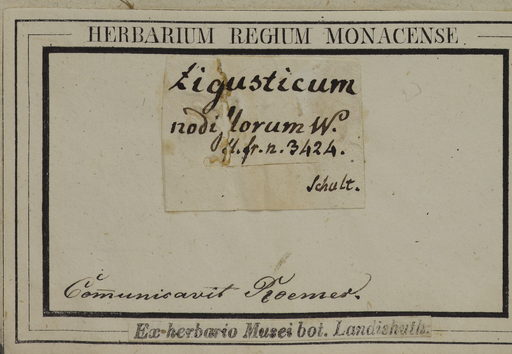 HERBARIUM REGIUM MONACENSE
Ligusticum
nodiflorum W.
fl. fr. n. 3424.
Schult.
Com̄unicavit Roemer.
Ex herbario Musei bot. Landishuth.